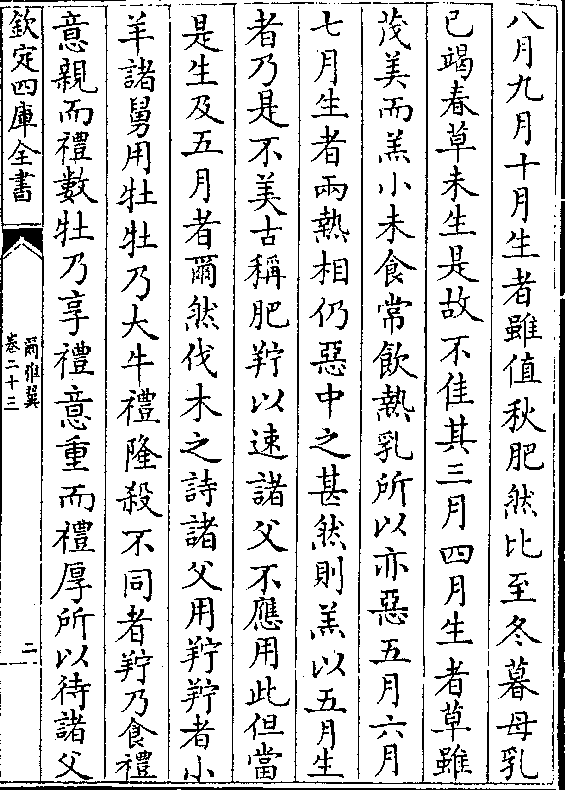 八月九月十月生者雖值秋肥然比至冬暮母乳
已竭春草未生是故不佳其三月四月生者草雖
茂美而羔小未食常飲熱乳所以亦惡五月六月
七月生者兩熱相仍惡中之甚然則羔以五月生
者乃是不美古稱肥羜以速諸父不應用此但當
是生及五月者爾然伐木之詩諸父用羜羜者小
羊諸舅用牡牡乃大牛禮隆殺不同者羜乃食禮
意親而禮數牡乃享禮意重而禮厚所以待諸父
欽定四庫全書
爾雅翼
卷二十三
二